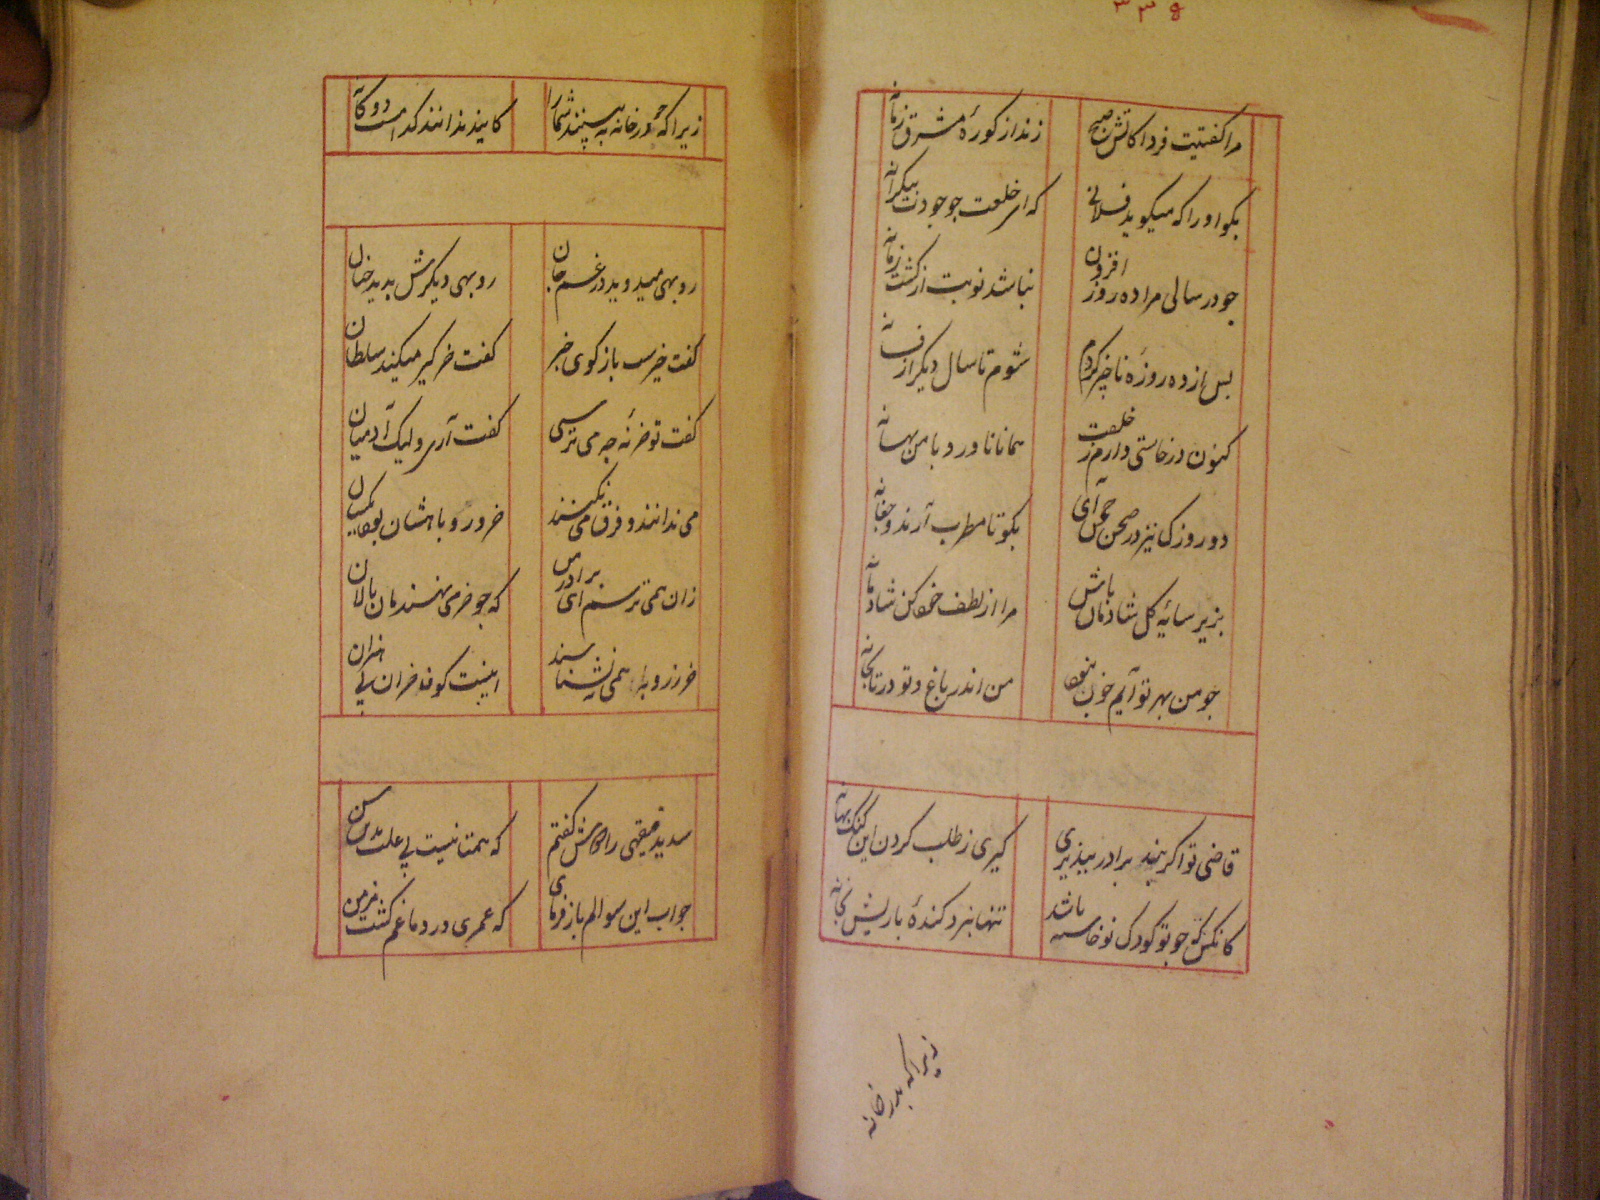 ۳۳۵
مرا گفتیت فردا کاتش صبح
زند از کورهٔ مشرق زمانه
بگو او را که میگوید فلانی
که ای خلعت جو جودت بیکرانه
جو در سالی مرا ده روز افزون
نباشد نوبت از گشت زمانه
بس از ده روزه ناجیز کردم
شوم تا سال دیگر از فسانه
کنون درخاستی دارم ز خلعت
همانا ناورد با من بهانه
دو روزک نیز در صحن جمن آی
بگو تا مطرب آرند و جغانه
بزیر سایهٔ گل شادمان باش
مرا از لطف خود کن شادمانه
جو من بهر تو آیم خون نبود
من اندر باغ و تو در تابخانه
قاضی تو اگر پند برادر بپذیری
گیری ز طلب کردن این گنگ بهانه
کانکس که جو تو کودک نوخاسته باشد
تنها نبرد کندهٔ با ریش بخانه
زیرا که بدر خانه
زیرا که جو در خانه به بینند شما را
کایند ندانند کدامست دوگانه
روبهی میدوید در غم جان
روبهی دیگرش بدید چنان
گفت خیرست باز گوی خبر
گفت خر گیر میکند سلطان
گفت تو خر نه جه می ترسی
گفت آری ولیک آدمیان
می ندانند و فرق می نکنند
خر و روباهشان بود یکسان
زان همی ترسم ای برادر من
که جو خر می نهندمان بالان
خر ز روباه می نشناسند
اینت کون خران بی خبران
سدید فیقهی را دوش گفتم
که همتا نیست بی علت مدرس
جواب این سوالم باز فرمای
که عمری در دماغم گشت مزمن